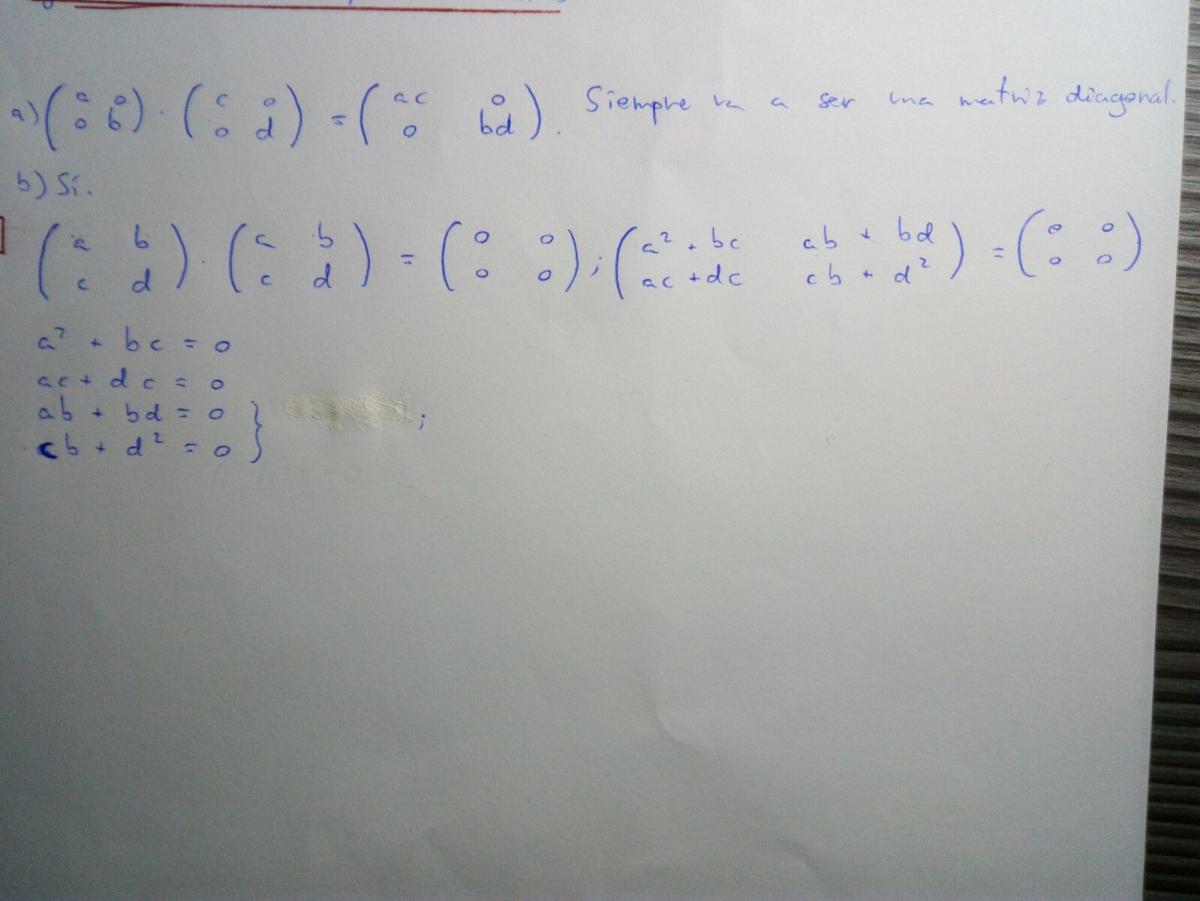 a) (a 0 / 0 b) · (c 0 / 0 d) = (ac 0 / 0 bd). Siempre va a ser una matriz diagonal.
b) Sí.
(a b / c d) · (a b / c d) = (0 0 / 0 0); (a² + bc ab + bd / ac + dc cb + d²) = (0 0 / 0 0)
a² + bc = 0
ac + dc = 0
ab + bd = 0
cb + d² = 0 } ;